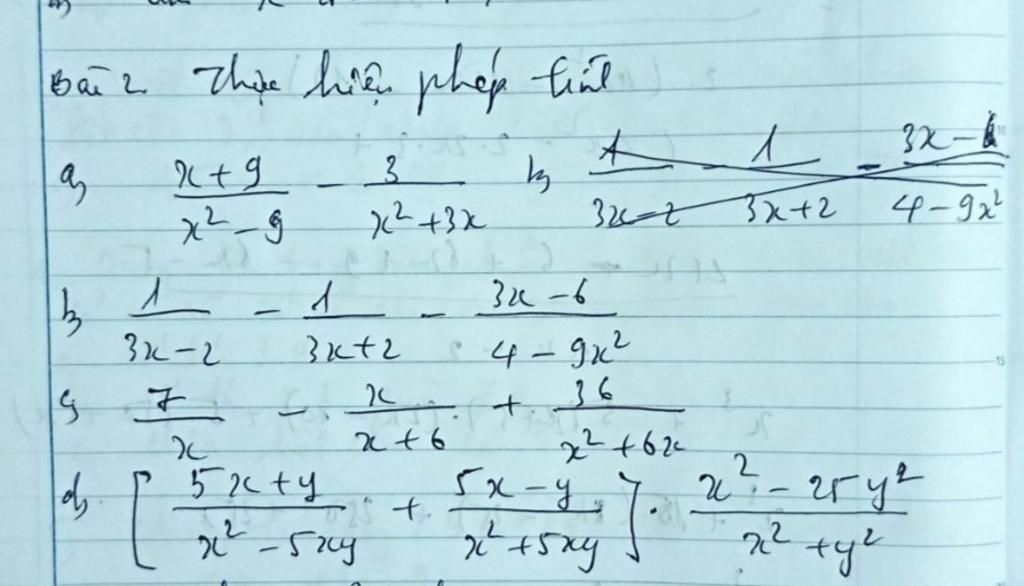 Bài 2. Thực hiện phép tính
a) (x+9)/(x² - 9) - 3/(x² + 3x) b) 1/(3x-2) - 1/(3x+2) - (3x-6)/(4-9x²)
b) 1/(3x-2) - 1/(3x+2) - (3x-6)/(4-9x²)
c) 7/x - x/(x+6) + 36/(x² + 6x)
d) [(5x+y)/(x² - 5xy) + (5x-y)/(x² + 5xy)] · (x² - 25y²)/(x² + y²)